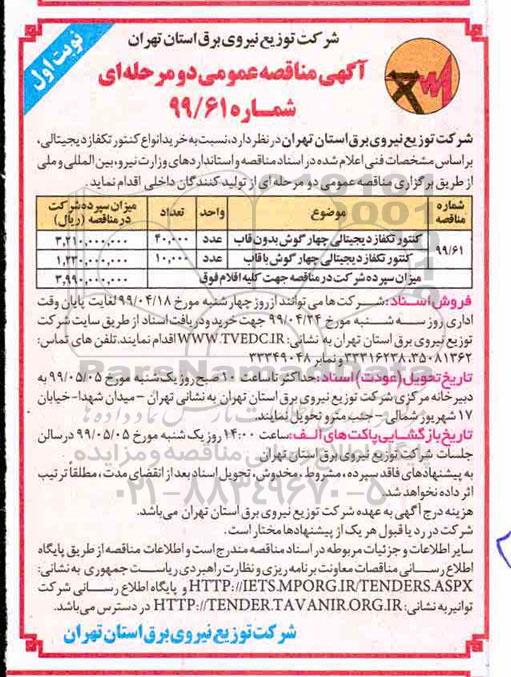 نوبت اول
شرکت توزیع نیروی برق استان تهران
آگهی مناقصه عمومی دو مرحله ای
شماره ۹۹/۶۱
شرکت توزیع نیروی برق استان تهران در نظر دارد، نسبت به خرید انواع کنتور تکفاز دیجیتالی،
بر اساس مشخصات فنی اعلام شده در اسناد مناقصه و استانداردهای وزارت نیرو، بین المللی و ملی
از طریق برگزاری مناقصه عمومی دو مرحله ای از تولید کنندگان داخلی اقدام نماید.
شماره مناقصه موضوع واحد تعداد میزان سپرده شرکت در مناقصه (ریال)
۹۹/۶۱ کنتور تکفاز دیجیتالی چهار گوش بدون قاب عدد ۳۰,۰۰۰ ۳,۲۱۰,۰۰۰,۰۰۰
کنتور تکفاز دیجیتالی چهار گوش با قاب عدد ۱۰,۰۰۰ ۱,۲۳۰,۰۰۰,۰۰۰
میزان سپرده شرکت در مناقصه جهت کلیه اقلام فوق ۳,۹۹۰,۰۰۰,۰۰۰
فروش اسناد: شرکت ها می توانند از روز چهار شنبه مورخ ۹۹/۰۴/۱۸ لغایت پایان وقت
اداری روز سه شنبه مورخ ۹۹/۰۴/۲۴ جهت خرید و دریافت اسناد از طریق سایت شرکت
توزیع نیروی برق استان تهران به نشانی: WWW.TVEDC.IR اقدام نمایند. تلفن های تماس:
۳۵۰۸۱۳۶۲، ۳۳۳۱۶۲۳۸ و نمابر ۳۳۳۴۹۰۴۸
تاریخ تحویل (عودت) اسناد: حداکثر تا ساعت ۱۰ صبح روز یک شنبه مورخ ۹۹/۰۵/۰۵ به
دبیرخانه مرکزی شرکت توزیع نیروی برق استان تهران به نشانی تهران - میدان شهدا- خیابان
۱۷ شهریور شمالی - جنب مترو تحویل نمایند.
تاریخ بازگشایی پاکت های الف: ساعت ۱۴:۰۰ روز یک شنبه مورخ ۹۹/۰۵/۰۵ در سالن
جلسات شرکت توزیع نیروی برق استان تهران
به پیشنهادهای فاقد سپرده، مشروط، مخدوش، تحویل اسناد بعد از انقضای مدت، مطلقا ترتیب
اثر داده نخواهد شد.
هزینه درج آگهی به عهده شرکت توزیع نیروی برق استان تهران می باشد.
شرکت در رد یا قبول هر یک از پیشنهادها مختار است.
سایر اطلاعات و جزئیات مربوطه در اسناد مناقصه مندرج است و اطلاعات مناقصه از طریق پایگاه
اطلاع رسانی مناقصات معاونت برنامه ریزی و نظارت راهبردی ریاست جمهوری به نشانی:
HTTP://IETS.MPORG.IR/TENDERS.ASPX و پایگاه اطلاع رسانی شرکت
توانیر به نشانی: HTTP://TENDER.TAVANIR.ORG.IR در دسترس می باشد.
شرکت توزیع نیروی برق استان تهران
ParsNamadData
۰۲۱-۸۸۳۴۹۶۷۰-۵